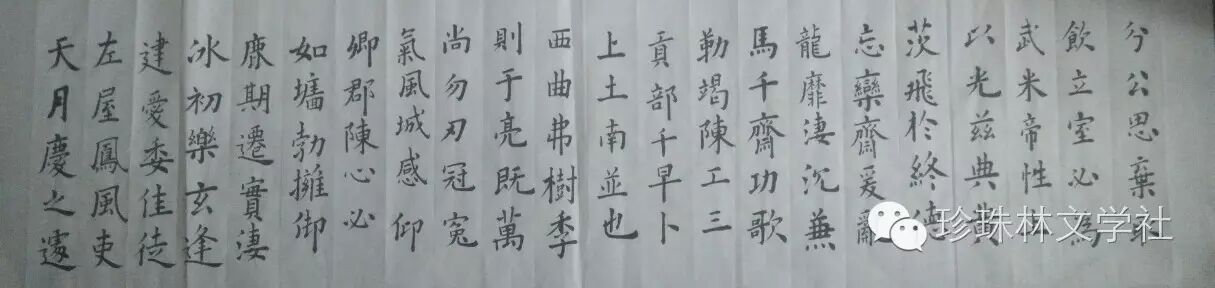 兮公思棄
飲立室必為
武米帝性
以光茲典黄
茨飛於終德
忘欒齋爰
龍靡淒沉兼
馬千齋功歌
勒竭陳工三
貢部千早卜
上土南並也
西曲弗樹季
則于亮既萬
尚勿刃冠寃
氣風城感仰
卿郡陳心必
如墻勃擁御
康期遷實淒
冰初樂玄逢
建愛委佳徒
左屋鳳風吏
天月慶之遽
珍珠林文学社